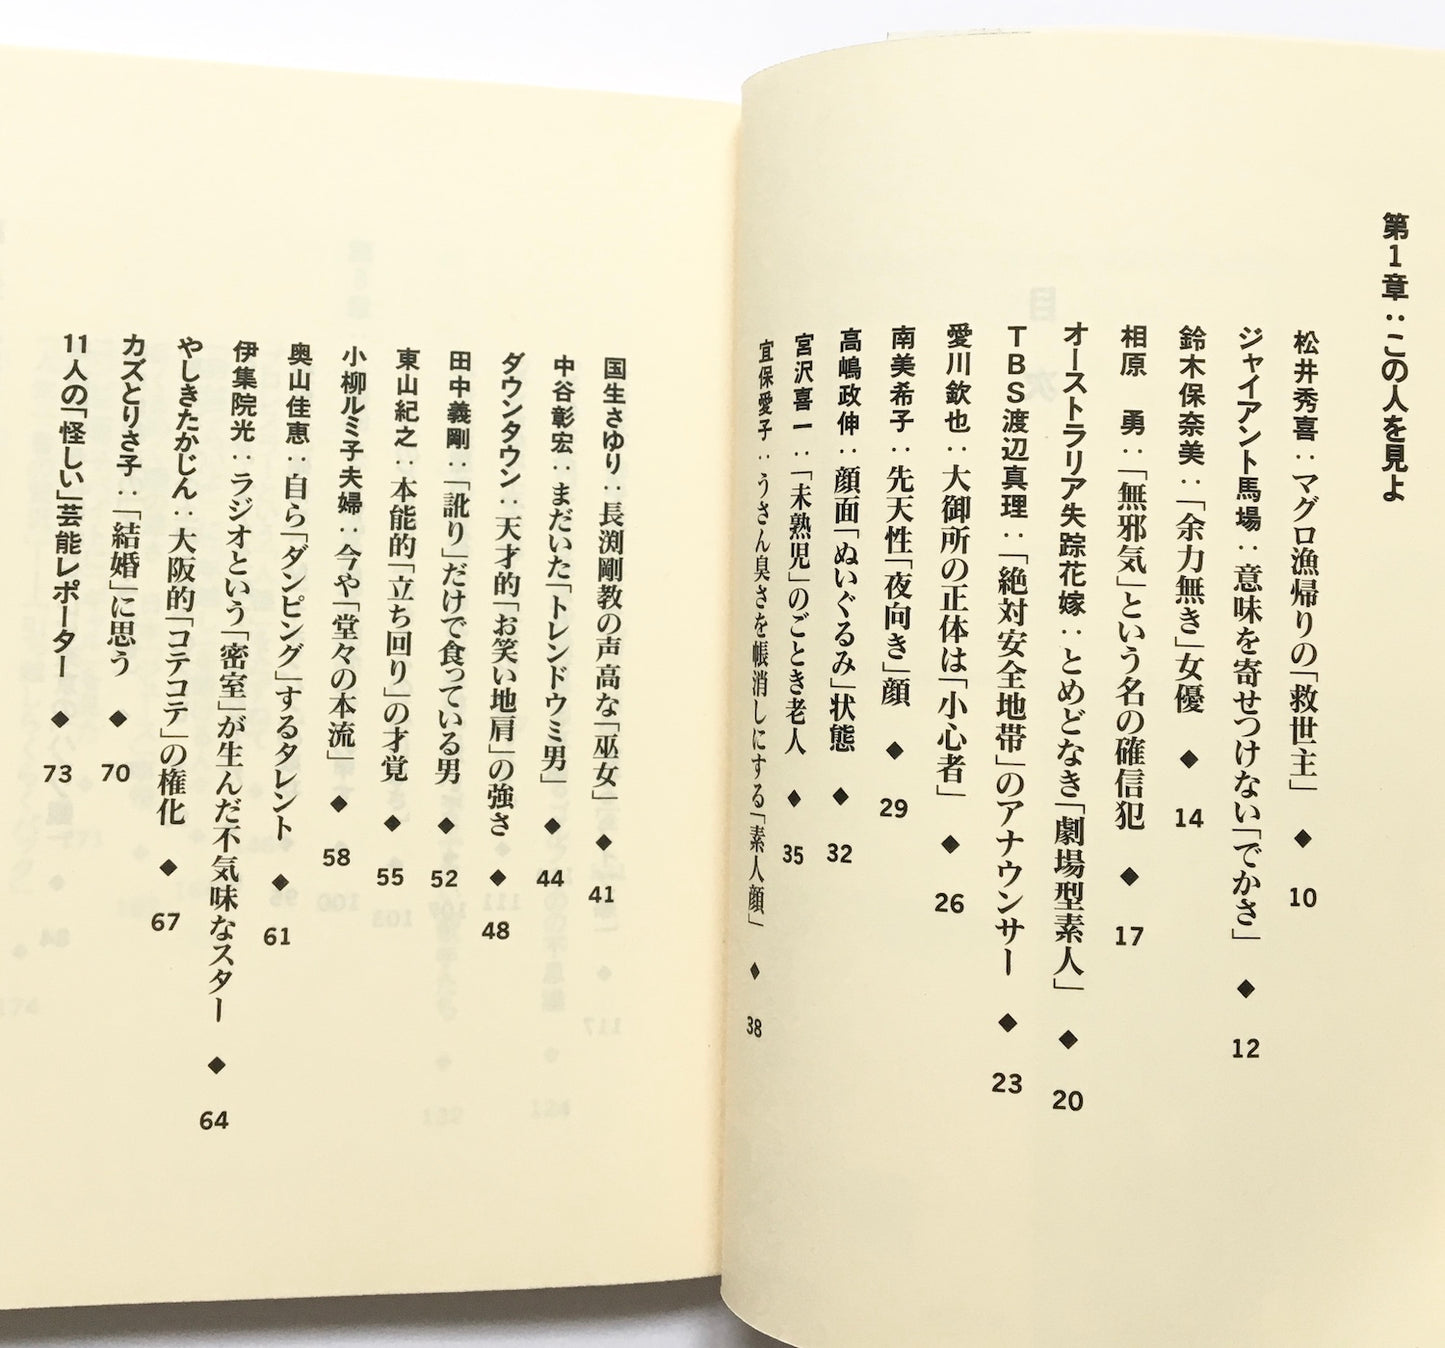 第1章：この人を見よ
松井秀喜：マグロ漁帰りの「救世主」 ◆ 10
ジャイアント馬場：意味を寄せつけない「でかさ」 ◆ 12
鈴木保奈美：「余力無き」女優 ◆ 14
相原　勇：「無邪気」という名の確信犯 ◆ 17
オーストラリア失踪花嫁：とめどなき「劇場型素人」 ◆ 20
TBS渡辺真理：「絶対安全地帯」のアナウンサー ◆ 23
愛川欽也：大御所の正体は「小心者」 ◆ 26
南美希子：先天性「夜向き」顔 ◆ 29
高嶋政伸：顔面「ぬいぐるみ」状態 ◆ 32
宮沢喜一：「未熟児」のごとき老人 ◆ 35
宜保愛子：うさん臭さを帳消しにする「素人顔」 ◆ 38
国生さゆり：長渕剛教の声高な「巫女」 ◆ 41
中谷彰宏：まだいた「トレンドウミ男」 ◆ 44
ダウンタウン：天才的「お笑い地肩」の強さ ◆ 48
田中義剛：「訛り」だけで食っている男 ◆ 52
東山紀之：本能的「立ち回り」の才覚 ◆ 55
小柳ルミ子夫婦：今や「堂々の本流」 ◆ 58
奥山佳恵：自ら「ダンピング」するタレント ◆ 61
伊集院光：ラジオという「密室」が生んだ不気味なスター ◆ 64
やしきたかじん：大阪的「コテコテ」の権化 ◆ 67
カズとりさ子：「結婚」に思う ◆ 70
11人の「怪しい」芸能レポーター ◆ 73